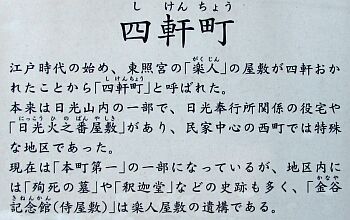 し けん ちょう
四軒町
がくじん
江戸時代の始め、東照宮の「楽人」の屋敷が四軒おか
しけんちょう
れたことから「四軒町」と呼ばれた。
本来は日光山内の一部で、日光奉行所関係の役宅や
にっこう ひ の ばん や しき
「日光火之番屋敷」があり、民家中心の西町では特殊
な地区であった。
現在は「本町第一」の一部になっているが、地区内に
かなや
は「殉死の墓」や「釈迦堂」などの史跡も多く、「金谷
きねんかん
記念館(侍屋敷)」は楽人屋敷の遺構である。